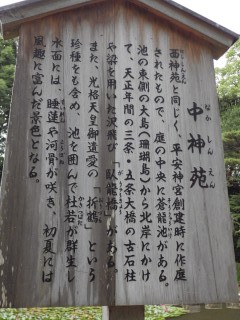 中神苑
なかしんえん
西神苑と同じく、平安神宮創建時に作庭
されたもので、庭の中央に蒼龍池がある。
池の東側の大島(珊瑚島)から北岸にかけ
て、天正年間の三条・五条大橋の古石柱
や梁を用いた沢飛び「臥龍橋」がある。
また、光格天皇御遺愛の「折鶴」という
珍種をも含め、池を囲んで杜若が群生し
水面には、睡蓮や河骨が咲き、初夏には
風趣に富んだ景色となる。